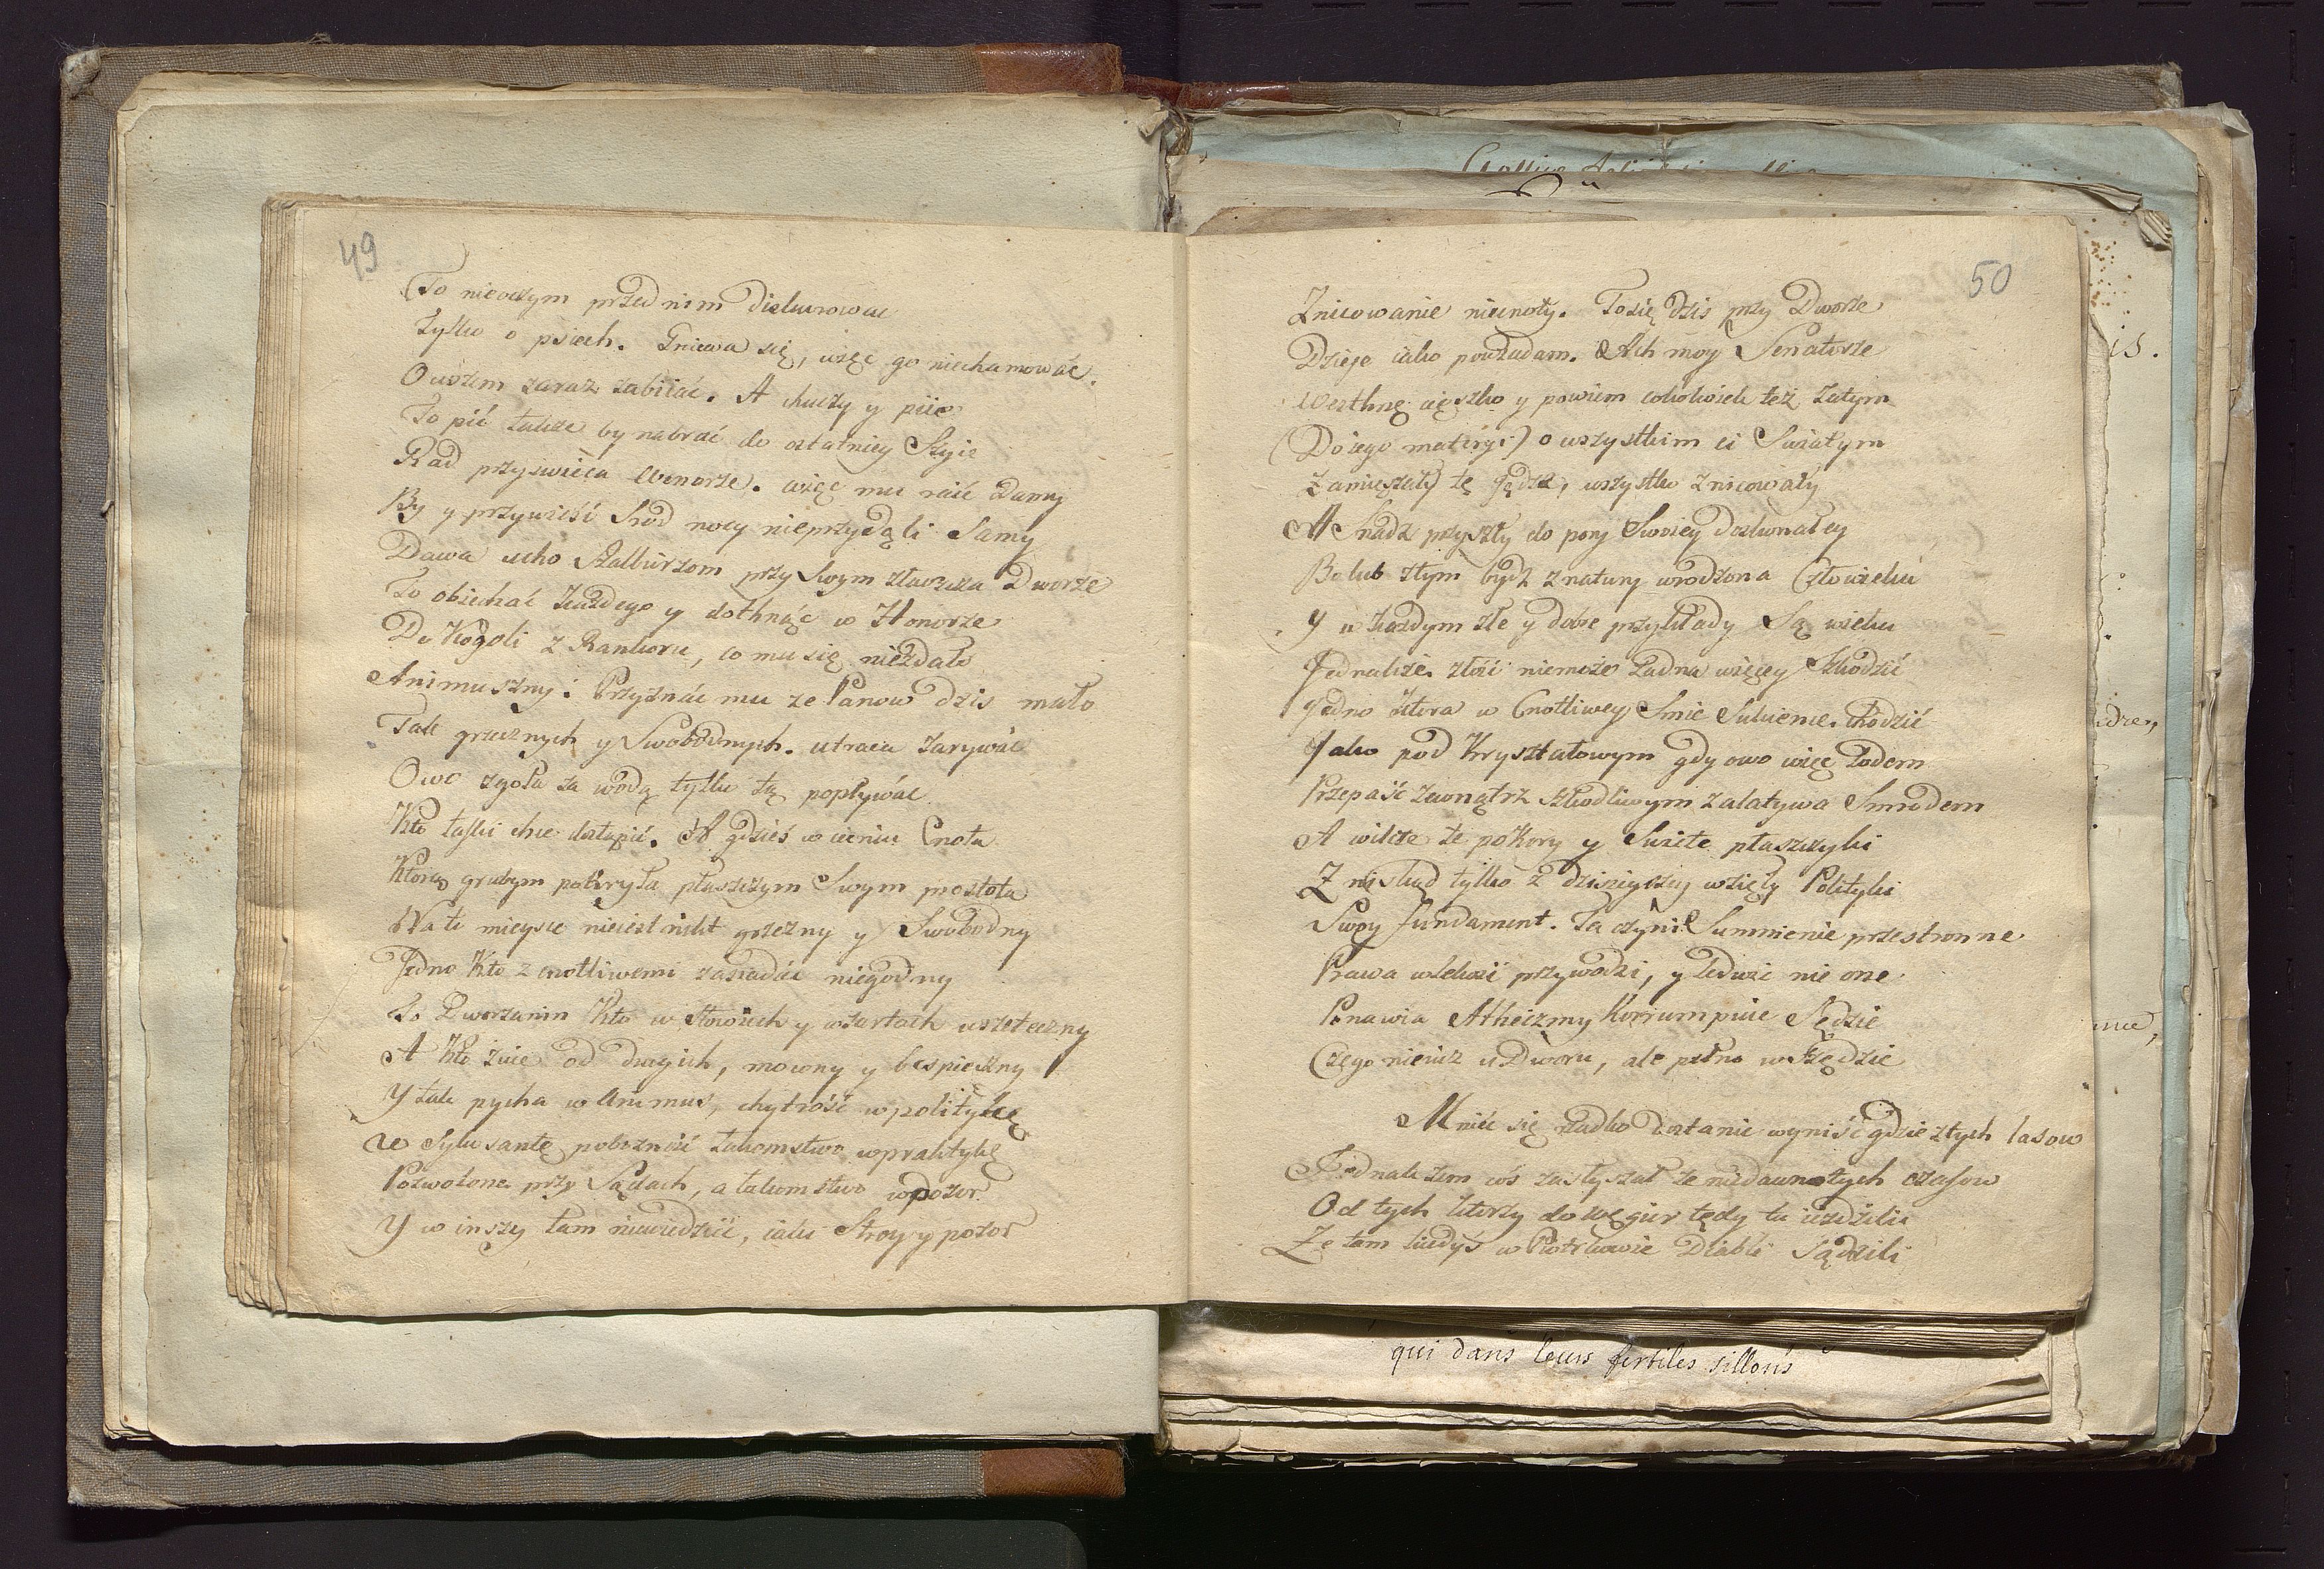 49
To nieoczym przed nim diskurować
tylko o psiech. Gniewa się, więc go niehamować.
Owszem zaraz zabiiać. A kuczy y piie
To pić także by nabrać do ostatniey Szyie
Rad przyświeca Wenerze. więc mu raić Damy
By y przywieść Srod nocy nieprzydą li Samy
Dawa ucho Szalbirzom przy Swym Dworze
To obiechać każdego y dotknąć w Honorze
Do Kogoli z Rankoru, co mu się niezdało
Animuszny: Przyznać mu ze Panow dzis mało
Tak grzecznych y Swobodnych. utraca zarywać
Owo zgoła za wodą tylko tą popływać
Kto łaski chce dostąpić. A gdzieś w cieniu Cnota
Ktorą grubym pokryła płaszczym Swym prostota
Na te mieysce nieiest nikt grzeczny y Swobodny
Jedno Kto z cnotliwemi zasiadać niegodny
To Dworzanin Kto w słowiech y w żartach wszeteczny
A Kto żuie od drugich, mowny y bespieczny
Y tak pycha w Animus, chytrość w politykę
W Sykofantę pobożność łakomstwo w praktykę
Pozwolone przy Sądach, a łakomstwo w pozor
Y w inszy tam niewiedzieć, iaki Stroy y pozor
50
Znicowanie niecnoty. To się dzis przy Dworze
Dzieje iako powiadam. Ach moy Senatorze
Westhnę cięszko y powiem cokolwiek też zatym
(Do iego materyi) o wszystkim ci Swiatym
Zamięszały tę Jędze, wszystko znicowały
A snadz przyszły do pory Swoiey doskonałey
Bo lub złym bydz z natury wrodzona Człowieku
Y w każdym złe y dobre przykłady Są wieku
Jednakże złość niemoże żadna więcey szkodzić
Jedno ktora w Cnotliwey Smie Sukience chodzić
Jako pod Kryształowym gdy owo więc lodem
Przepaść zewnątrz szkodliwym zalatywa Smrodem
A wilcze te pokory y Swiete płaszczyki
Z niskąd tylko z dzisieyszey wzięły Polityki
Swoy fundament. Ta czyni Sumnienie przestronne
Prawa w lekość przywodzi, y ledwie nie one
Ponawia Atheizmy Korrumpuie Sędzie
Czego nierisz u Dworu, ale pełno w rzędzie
Mnie się rzadko dostanie wyniść gdzie z tych lasow
Jednak zem cos zasłyszał ze niedawnotych czasow
Od tych ktorzy do węgier tędy tu ieździli
Ze tam kiedyś w Piotrkowie Diabli Sądzili
qui dans leurs fertiles sillons
is.